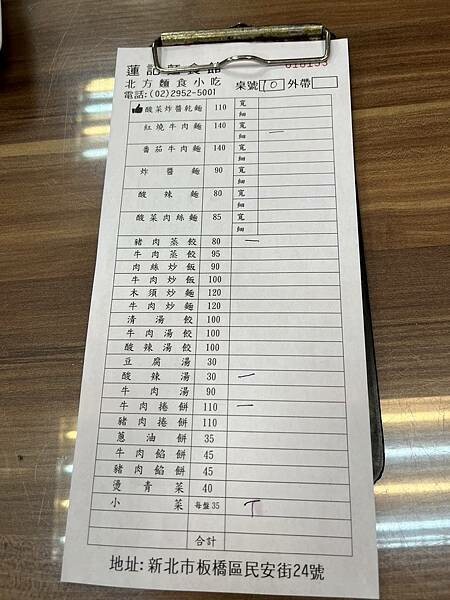 蓮記麵食館
北方麵食小吃 桌號 10 外帶
電話:(02)2952-5001
酸菜炸醬乾麵 110 寬 細
紅燒牛肉麵 140 寬 細 一
番茄牛肉麵 140 寬 細
炸醬麵 90 寬 細
酸辣麵 80 寬 細
酸菜肉絲麵 85 寬 細
豬肉蒸餃 80 一
牛肉蒸餃 95
肉絲炒飯 90
牛肉炒飯 100
木須炒麵 120
牛肉炒麵 120
清湯餃 100
牛肉湯餃 100
酸辣湯餃 100
豆腐湯 30
酸辣湯 30 一
牛肉湯 90
牛肉捲餅 110 一
豬肉捲餅 110
蔥油餅 35
牛肉餡餅 45
豬肉餡餅 45
燙青菜 40
小菜 每盤35 T
合計
地址: 新北市板橋區民安街24號